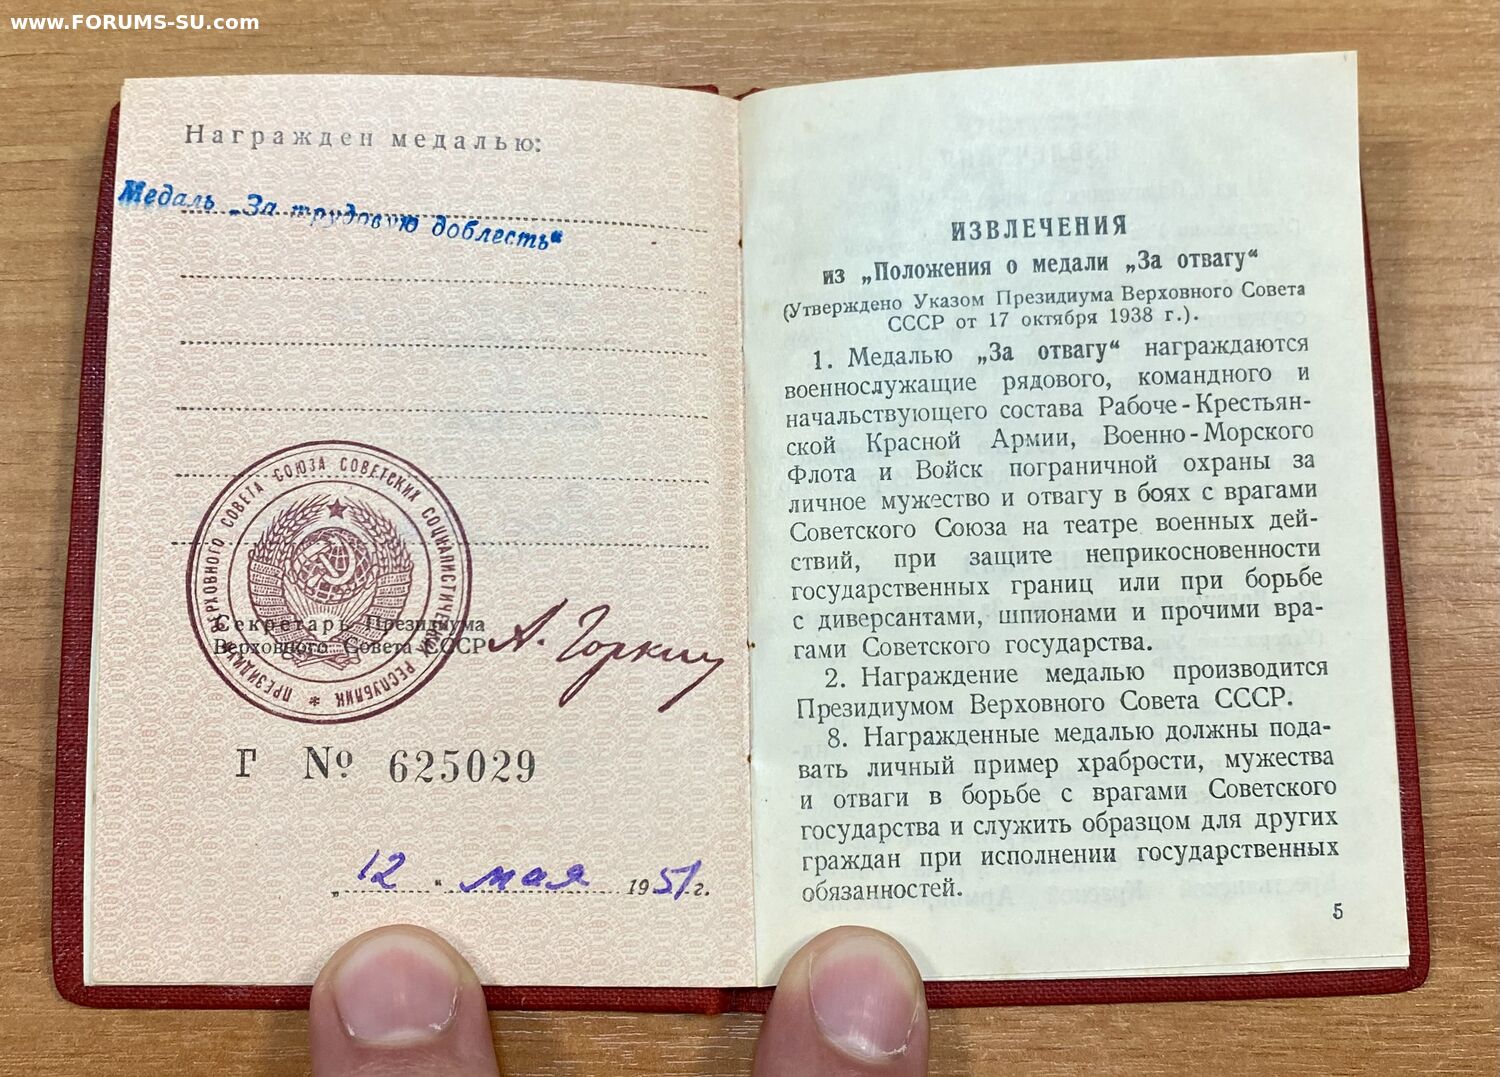 www.FORUMS-SU.com
Награжден медалью:
Медаль „За трудовую доблесть“
ПРЕЗИДИУМ ВЕРХОВНОГО СОВЕТА СОЮЗА СОВЕТСКИХ СОЦИАЛИСТИЧЕСКИХ РЕСПУБЛИК *
Секретарь Президиума
Верховного Совета СССР А. Горкин
Г № 625029
„12“ мая 1951 г.
ИЗВЛЕЧЕНИЯ
из „Положения о медали „За отвагу“
(Утверждено Указом Президиума Верховного Совета
СССР от 17 октября 1938 г.).
1. Медалью „За отвагу“ награждаются
военнослужащие рядового, командного и
начальствующего состава Рабоче-Крестьян-
ской Красной Армии, Военно-Морского
Флота и Войск пограничной охраны за
личное мужество и отвагу в боях с врагами
Советского Союза на театре военных дей-
ствий, при защите неприкосновенности
государственных границ или при борьбе
с диверсантами, шпионами и прочими вра-
гами Советского государства.
2. Награждение медалью производится
Президиумом Верховного Совета СССР.
8. Награжденные медалью должны пода-
вать личный пример храбрости, мужества
и отваги в борьбе с врагами Советского
государства и служить образцом для других
граждан при исполнении государственных
обязанностей.
5